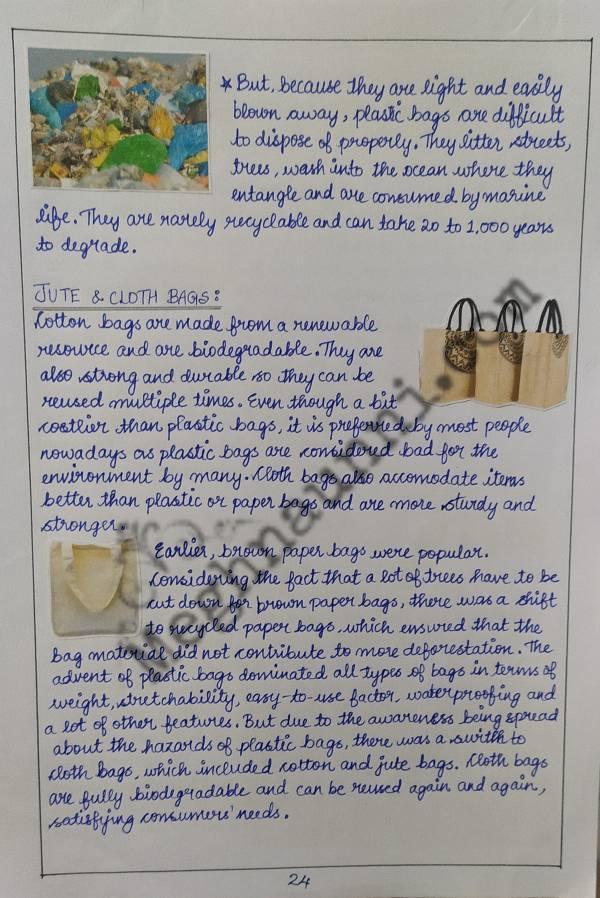 * But, because they are light and easily
blown away, plastic bags are difficult
to dispose of properly. They litter streets,
trees, wash into the ocean where they
entangle and are consumed by marine
life. They are rarely recyclable and can take 20 to 1,000 years
to degrade.
JUTE & CLOTH BAGS:
Cotton bags are made from a renewable
resource and are biodegradable. They are
also strong and durable so they can be
reused multiple times. Even though a bit
costlier than plastic bags, it is preferred by most people
nowadays as plastic bags are considered bad for the
environment by many. Cloth bags also accomodate items
better than plastic or paper bags and are more sturdy and
stronger.
Earlier, brown paper bags were popular.
Considering the fact that a lot of trees have to be
cut down for brown paper bags, there was a shift
to recycled paper bags, which ensured that the
bag material did not contribute to more deforestation. The
advent of plastic bags dominated all types of bags in terms of
weight, stretchability, easy-to-use factor, waterproofing and
a lot of other features. But due to the awareness being spread
about the hazards of plastic bags, there was a switch to
cloth bags, which included cotton and jute bags. Cloth bags
are fully biodegradable and can be reused again and again,
satisfying consumers' needs.
24